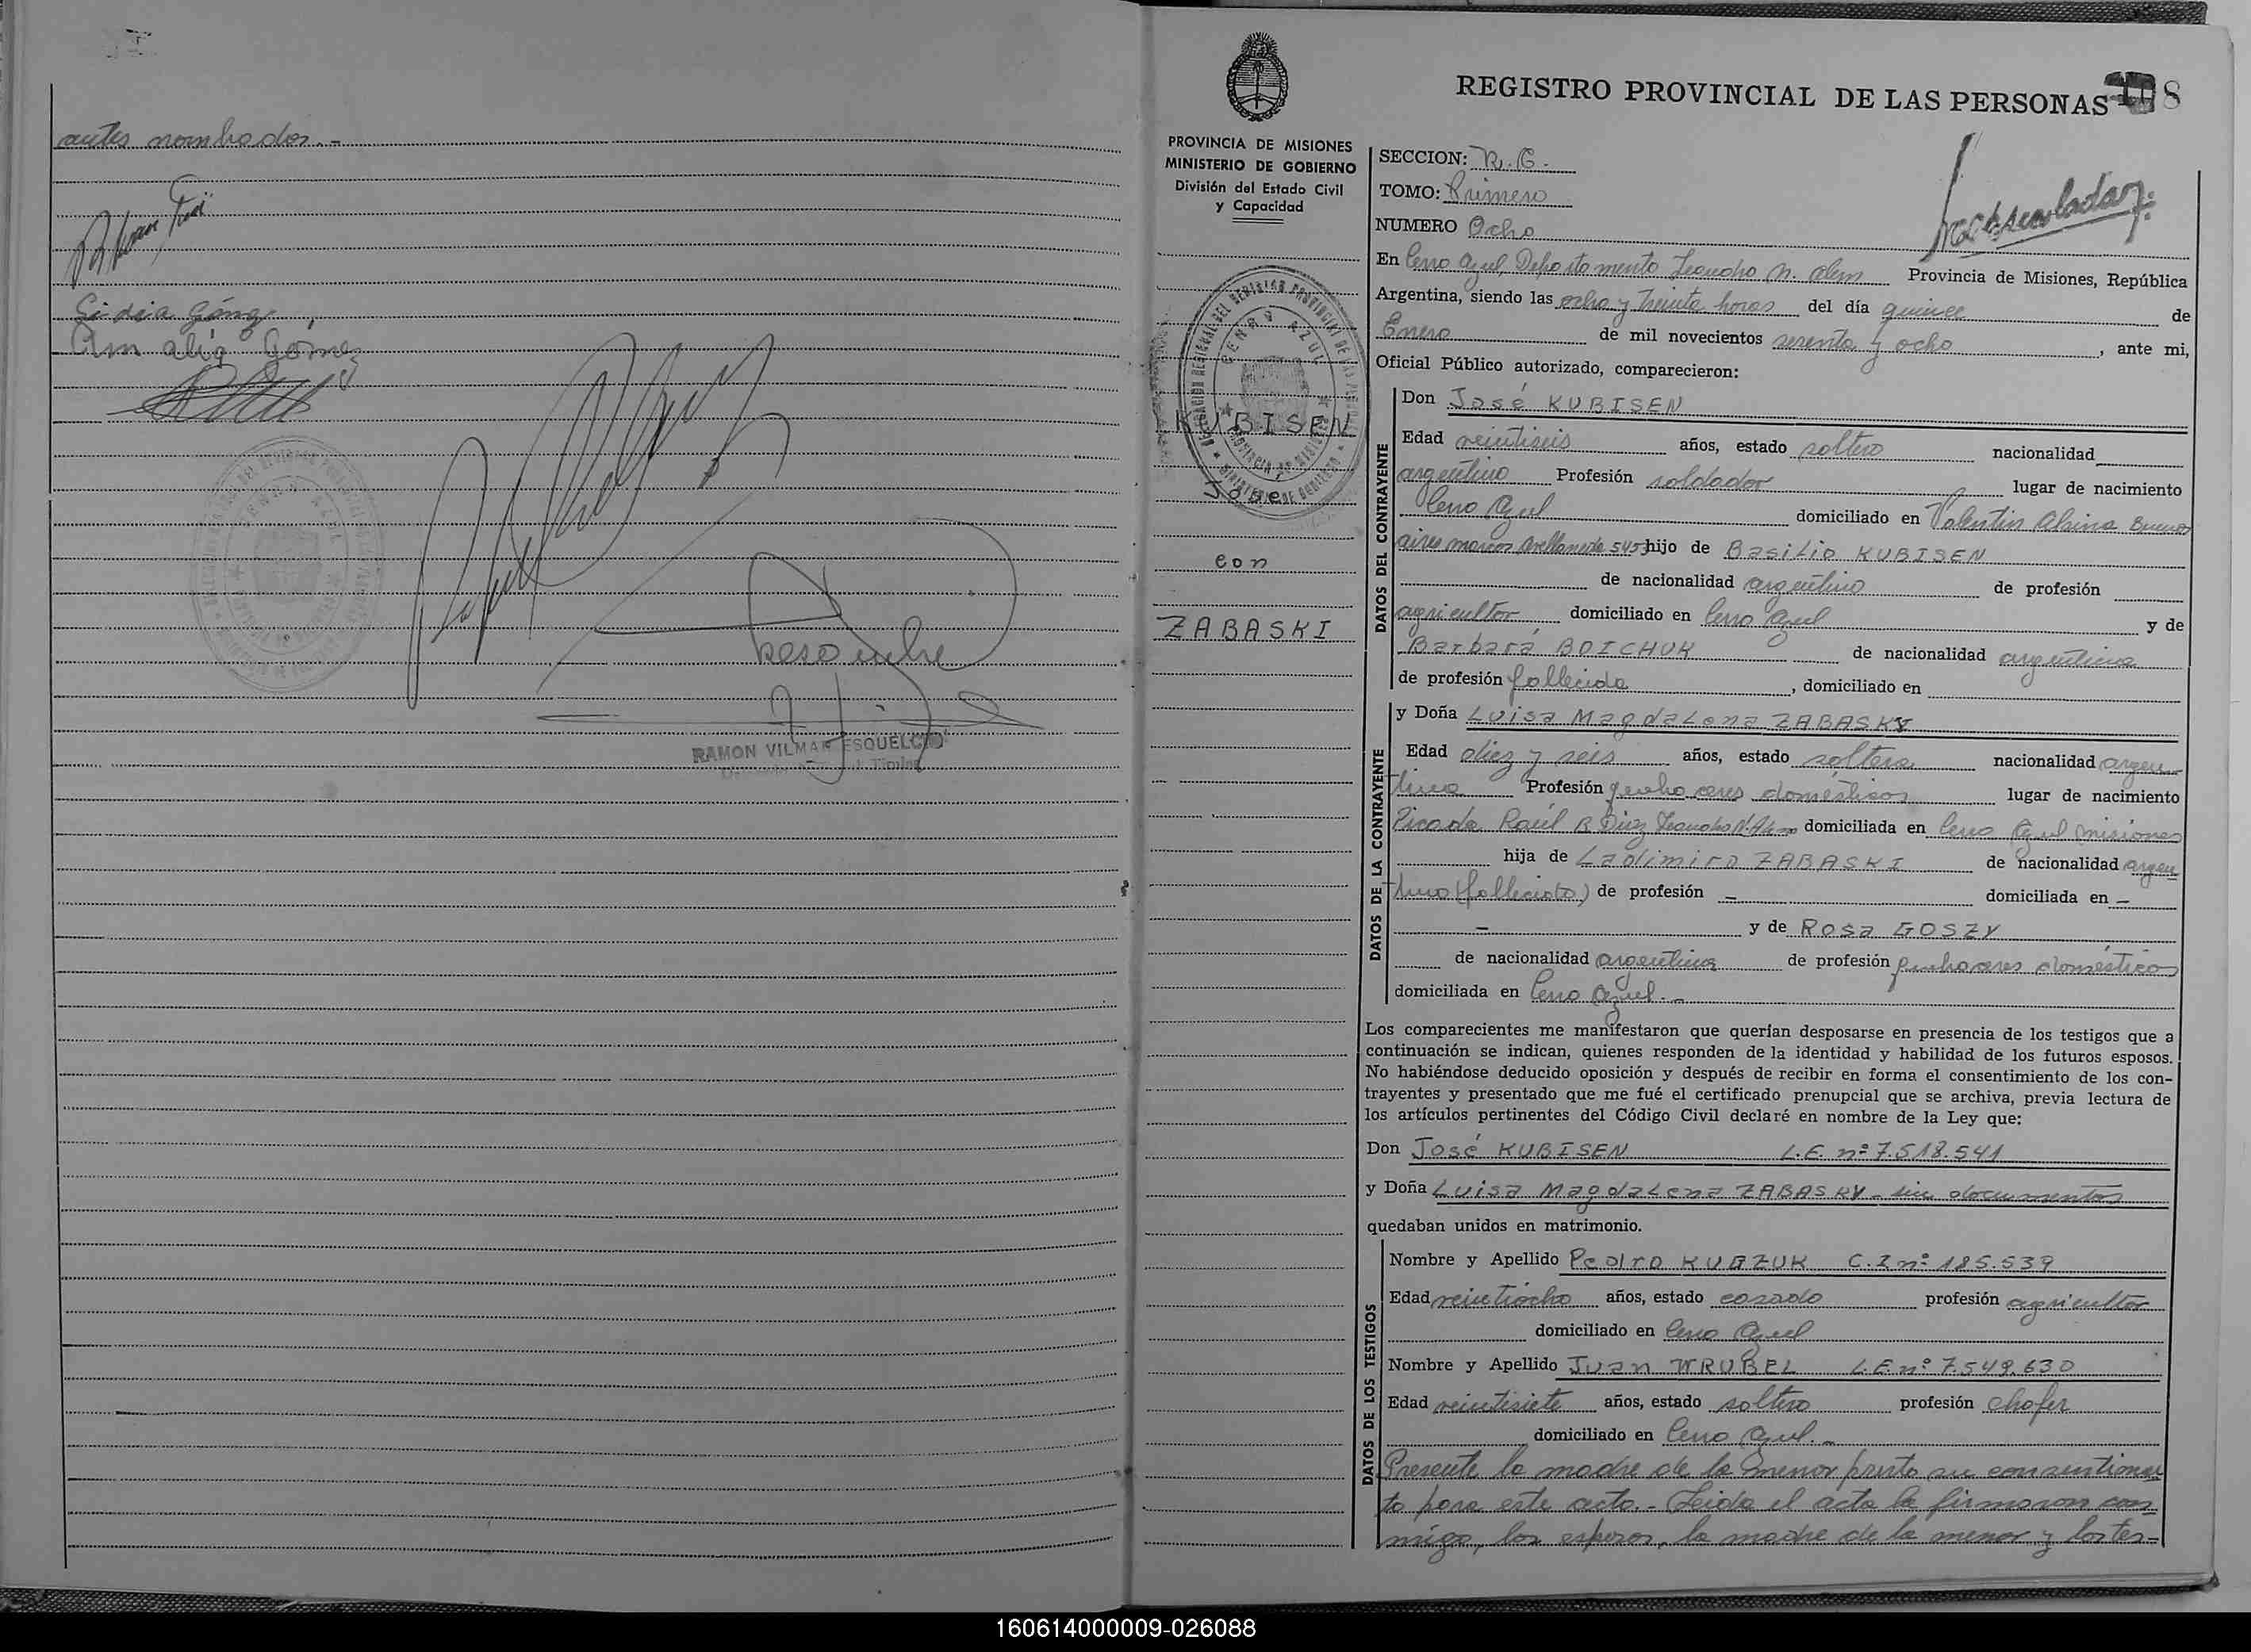 antes nombrados.-
Lidia Gómez
Amalia Gómez
RAMON VILMAR ESQUELCIO
REGISTRO PROVINCIAL DE LAS PERSONAS
8
PROVINCIA DE MISIONES
MINISTERIO DE GOBIERNO
División del Estado Civil
y Capacidad
KUBISEN
José
con
ZABASKI
SECCION: R.C.
TOMO: Primero
NUMERO Ocho
En Cerro Azul, Departamento Leandro N. Alem Provincia de Misiones, República
Argentina, siendo las ocho y treinta horas del día quince de
Enero de mil novecientos sesenta y ocho, ante mi,
Oficial Público autorizado, comparecieron:
DATOS DEL CONTRAYENTE
Don José KUBISEN
Edad veintiseis años, estado soltero nacionalidad
argentino Profesión soldador lugar de nacimiento
Cerro Azul domiciliado en Valentin Alsina Buenos
aires marcos Avellaneda 5453 hijo de Basilio KUBISEN
de nacionalidad argentino de profesión
agricultor domiciliado en Cerro Azul y de
Barbara BOICHUK de nacionalidad argentina
de profesión fallecida, domiciliado en
DATOS DE LA CONTRAYENTE
y Doña Luisa Magdalena ZABASKY
Edad diez y seis años, estado soltera nacionalidad argen-
tina Profesión quehaceres domésticos lugar de nacimiento
Picada Raúl R Diez Leandro N. Alem domiciliada en Cerro Azul misiones
hija de Ladimiro ZABASKI de nacionalidad argen
tino (fallecido) de profesión - domiciliada en -
- y de Rosa GOSZY
de nacionalidad argentina de profesión quehaceres domésticos
domiciliada en Cerro Azul.-
Los comparecientes me manifestaron que querían desposarse en presencia de los testigos que a
continuación se indican, quienes responden de la identidad y habilidad de los futuros esposos.
No habiéndose deducido oposición y después de recibir en forma el consentimiento de los con-
trayentes y presentado que me fué el certificado prenupcial que se archiva, previa lectura de
los artículos pertinentes del Código Civil declaré en nombre de la Ley que:
Don José KUBISEN L.E. nº 7.518.541
y Doña Luisa Magdalena ZABASKY - sin documentos
quedaban unidos en matrimonio.
DATOS DE LOS TESTIGOS
Nombre y Apellido Pedro KUGZUK C.I nº 185.539
Edad veintiocho años, estado casado profesión agricultor
domiciliado en Cerro Azul
Nombre y Apellido Juan WRUBEL L.E. nº 7.549.630
Edad veintisiete años, estado soltero profesión chofer
domiciliado en Cerro Azul.-
Presente la madre de la menor presto su consentimien
to para este acto.- Leida el acta la firmaron con
migo, los esposos, la madre de la menor y los tes-
160614000009-026088